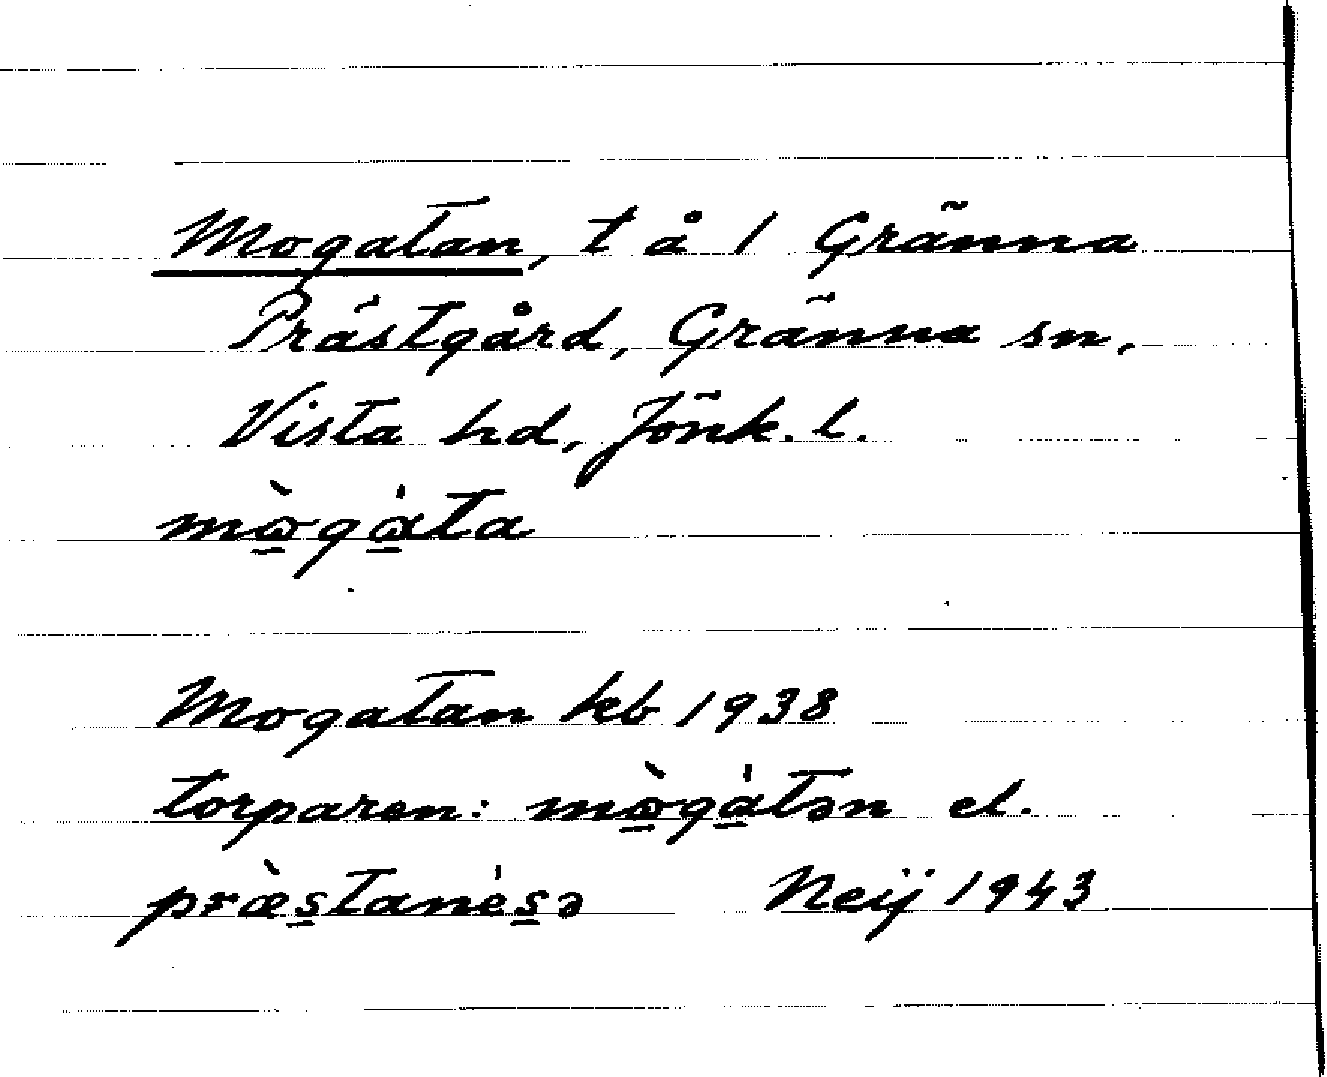 Mogatan, t å 1 Gränna
Prästgård, Gränna sn,
Vista hd, Jönk. l.
mὰ̱gά̱ta
Mogatan kb 1938
torparen: mὰ̱gά̱tən el.
præ̀s̱tanés̱ə Neij 1943